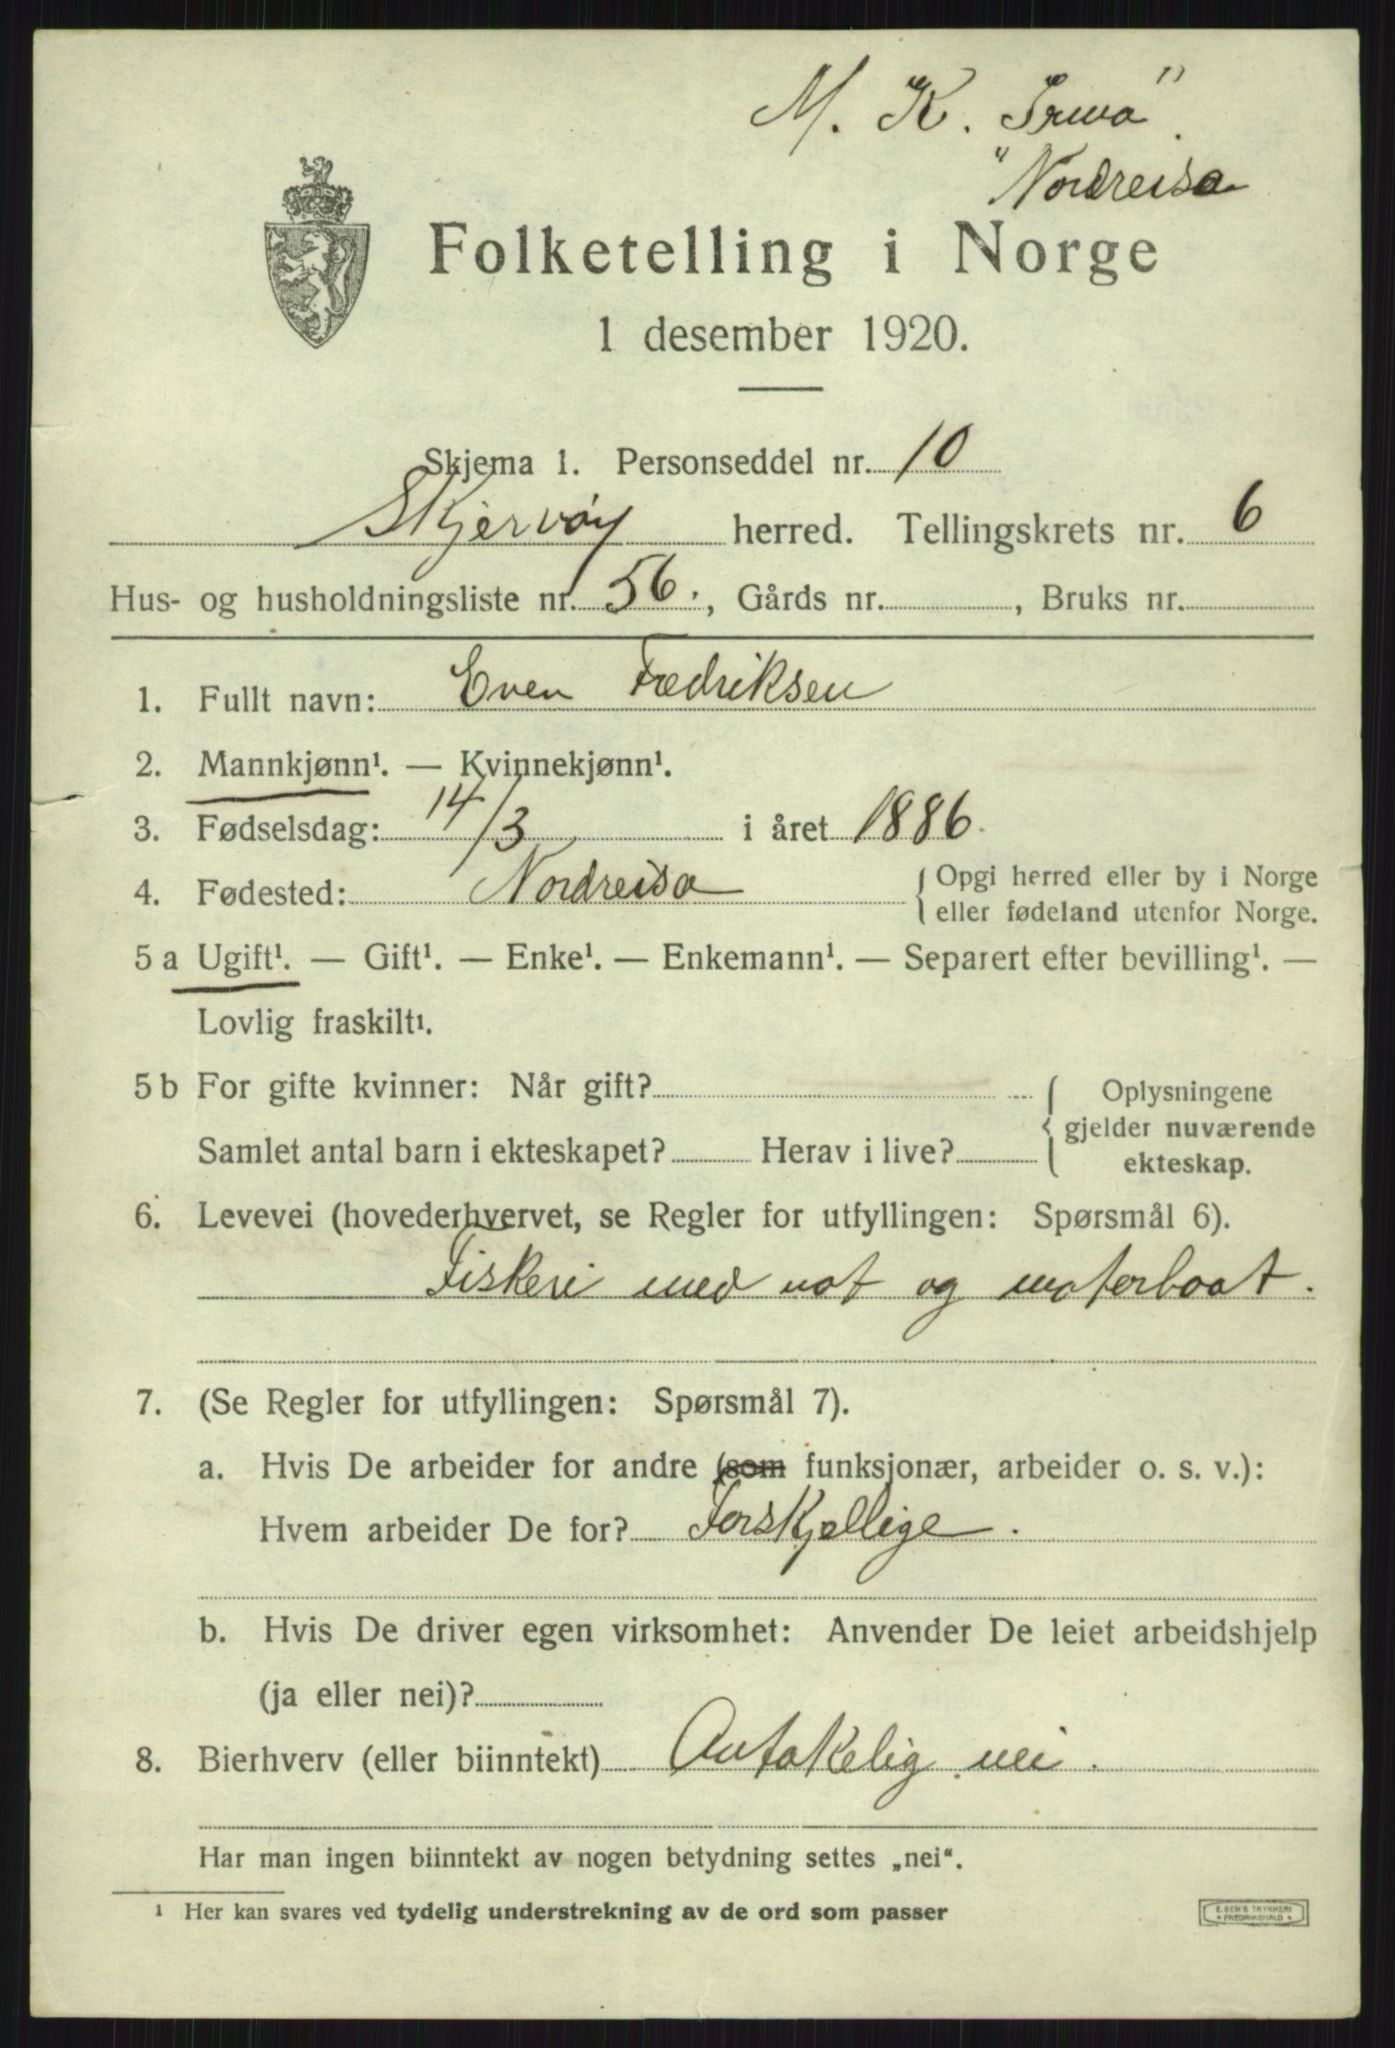 M. K. "Irma".
"Nordreisa
Folketelling i Norge
1 desember 1920.
Skjema 1. Personseddel nr. 10
Skjervøy herred. Tellingskrets nr. 6
Hus- og husholdningsliste nr. 56., Gårds nr. , Bruks nr.
1. Fullt navn: Even Fredriksen
2. Mannkjønn¹. — Kvinnekjønn¹.
3. Fødselsdag: 14/3 i året 1886.
4. Fødested: Nordreisa { Opgi herred eller by i Norge
eller fødeland utenfor Norge.
5 a Ugift¹. — Gift¹. — Enke¹. — Enkemann¹. — Separert efter bevilling¹. —
Lovlig fraskilt¹.
5 b For gifte kvinner: Når gift? { Oplysningene
gjelder nuværende
Samlet antal barn i ekteskapet? Herav i live? ekteskap.
6. Levevei (hovederhvervet, se Regler for utfyllingen: Spørsmål 6).
Fiskeri med not og moterboat.
7. (Se Regler for utfyllingen: Spørsmål 7).
a. Hvis De arbeider for andre (som funksjonær, arbeider o. s. v.):
Hvem arbeider De for? Forskjellige.
b. Hvis De driver egen virksomhet: Anvender De leiet arbeidshjelp
(ja eller nei)?
8. Bierhverv (eller biinntekt) Antakelig nei.
Har man ingen biinntekt av nogen betydning settes „nei“.
¹ Her kan svares ved tydelig understrekning av de ord som passer
E. SEM'S TRYKKERI
* FREDRIKSHALD *